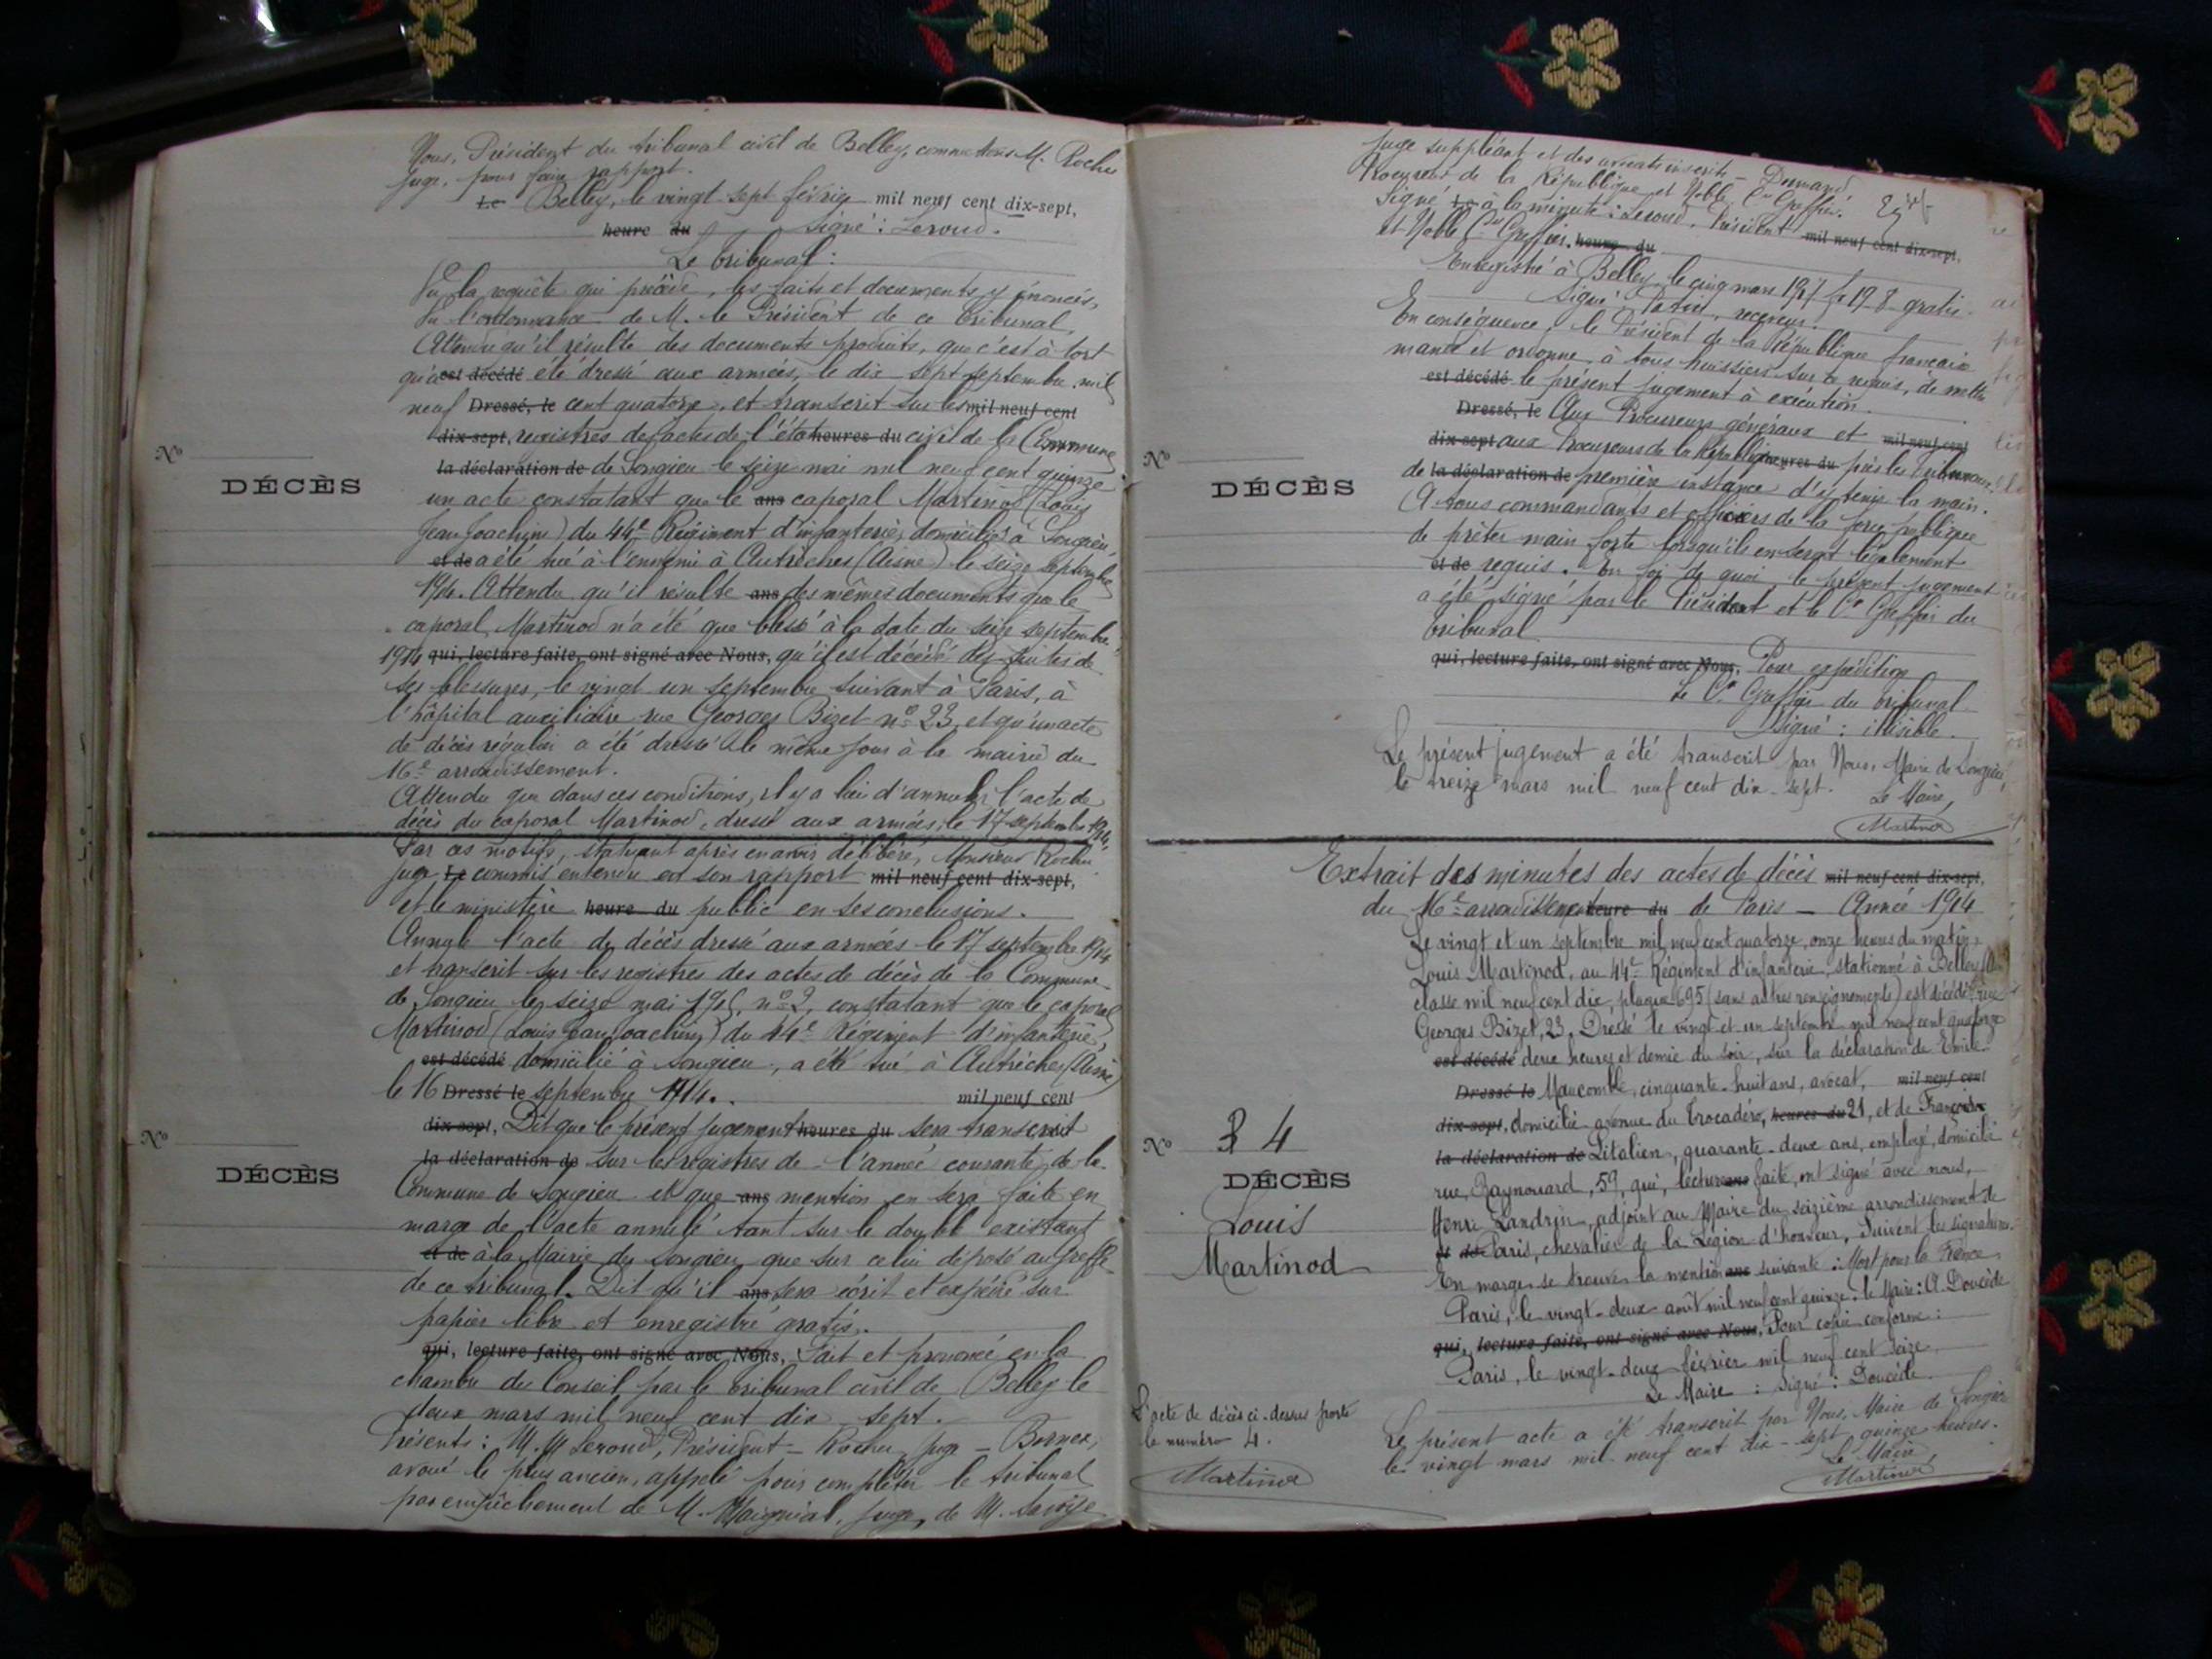 Nous, Président du tribunal civil de Belley, commettons M. Rochu
juge, pour faire rapport.
Le Belley, le vingt sept février mil neuf cent dix-sept,
heure du Signé : Leroud.
Le tribunal :
Vu la requête qui précède, les faits et documents y énoncés,
Vu l'ordonnance de M. le Président de ce tribunal,
Attendu qu'il résulte des documents produits, que c'est à tort
qu'a est décédé été dressé aux armées, le dix sept septembre mil
neuf Dressé, le cent quatorze, et transcrit sur les mil neuf cent
dix-sept, registres des actes de l'état heures du civil de la Commune
la déclaration de de Songieu le seize mai mil neuf cent quinze
un acte constatant que le ans caporal Martinod (Louis
Jean Joachim) du 44e Régiment d'infanterie, domicilié à Songieu,
et de a été tué à l'ennemi à Autrèches (Aisne) le seize septembre
1914. Attendu qu'il résulte ans des mêmes documents que le
caporal Martinod n'a été que blessé à la date du seize septembre
1914 qui, lecture faite, ont signé avec Nous, qu'il est décédé des suites de
ses blessures, le vingt un septembre suivant à Paris, à
l'hôpital auxiliaire rue Georges Bizet no 23, et qu'un acte
de décès régulier a été dressé le même jour à la mairie du
16e arrondissement.
Attendu que dans ces conditions, il y a lieu d'annuler l'acte de
décès du caporal Martinod, dressé aux armées, le 17 septembre 1914,
No
DÉCÈS
Par ces motifs, statuant après en avoir délibéré, Monsieur Rochu
juge Le commis entendu en son rapport mil neuf cent dix-sept,
et le ministère heure du public en ses conclusions.
Annule l'acte de décès dressé aux armées le 17 septembre 1914
et transcrit sur les registres des actes de décès de la Commune
de Songieu le seize mai 1915, no 2, constatant que le caporal
Martinod (Louis Jean Joachim) du 44e Régiment d'infanterie,
est décédé domicilié à Songieu, a été tué à Autrèches (Aisne)
le 16 Dressé le septembre 1914. mil neuf cent
dix-sept, Dit que le présent jugement heures du sera transcrit
la déclaration de sur les registres de l'année courante de la
Commune de Songieu et que ans mention en sera faite en
marge de l'acte annulé tant sur le double existant
et de à la Mairie de Songieu que sur celui déposé au Greffe
de ce tribunal. Dit qu'il ans sera écrit et expédié sur
papier libre et enregistré gratis.
qui, lecture faite, ont signé avec Nous, Fait et prononcé en la
chambre du Conseil par le tribunal civil de Belley le
deux mars mil neuf cent dix-sept.
Présents : M.M Leroud, Président - Rochu, juge - Bornex,
avoué le plus ancien, appelé pour compléter le tribunal
par empêchement de M. Maignial, juge, de M. Savoye
No
DÉCÈS
juge suppléant et des avocats inscrits - Dumand
Procureur de la République et Noble Cis Greffier.
Signé Le à la minute : Leroud, Président mil neuf cent dix-sept,
et Noble Cis Greffier. heure du
Enregistré à Belley, le cinq mars 1917 fo 19 - 8 gratis.
Signé : receveur.
En conséquence, le Président de la République française
mande et ordonne à tous huissiers sur ce requis, de mettre
est décédé le présent jugement à exécution.
Dressé, le Aux Procureurs généraux et mil neuf cent
dix-sept aux Procureurs de la République heures du près les tribunaux
de la déclaration de première instance d'y tenir la main.
A tous commandants et officiers de la force publique
de prêter main forte lorsqu'ils en seront légalement
et de requis. En foi de quoi, le présent jugement
a été signé par le Président et le Cis Greffier du
tribunal
qui, lecture faite, ont signé avec Nous. Pour expédition
Le Cis Greffier du tribunal
Signé : illisible.
Le présent jugement a été transcrit par Nous, Maire de Songieu,
le treize mars mil neuf cent dix-sept.
Le Maire,
Martinod
No
DÉCÈS
Extrait des minutes des actes de décès mil neuf cent dix-sept,
du 16e arrondissement heure du de Paris - Année 1914
Le vingt et un septembre mil neuf cent quatorze, onze heures du matin,
Louis Martinod, au 44e Régiment d'infanterie, stationné à Belley
classe mil neuf cent dix, plaque 695 (sans autres renseignements) est décédé rue
Georges Bizet, 23. Dressé le vingt-et-un septembre mil neuf cent quatorze
est décédé deux heures et demie du soir, sur la déclaration de Emile
Dressé le Maucomble, cinquante-huit ans, avocat, mil neuf cent
dix-sept, domicilié avenue du Trocadéro, heures du 21, et de François
la déclaration de Litalien, quarante-deux ans, employé, domicilié
rue Raynouard, 59, qui, lecture ans faite, ont signé avec nous,
Henri Landrin, adjoint au Maire du seizième arrondissement de
et de Paris, chevalier de la Légion d'honneur, Suivent les signatures.
En marge se trouve la mention ans suivante : Mort pour la France
Paris, le vingt-deux août mil neuf cent quinze. le Maire : A. Doucède
qui, lecture faite, ont signé avec Nous, Pour copie conforme :
Paris, le vingt-deux février mil neuf cent seize.
Le Maire : signé : Doucède.
Le présent acte a été transcrit par Nous, Maire de Songieu
le vingt mars mil neuf cent dix-sept quinze heures.
Le Maire
Martinod
No 3 4
DÉCÈS
Louis
Martinod
L'acte de décès ci-dessus porte
le numéro 4.
Martinod